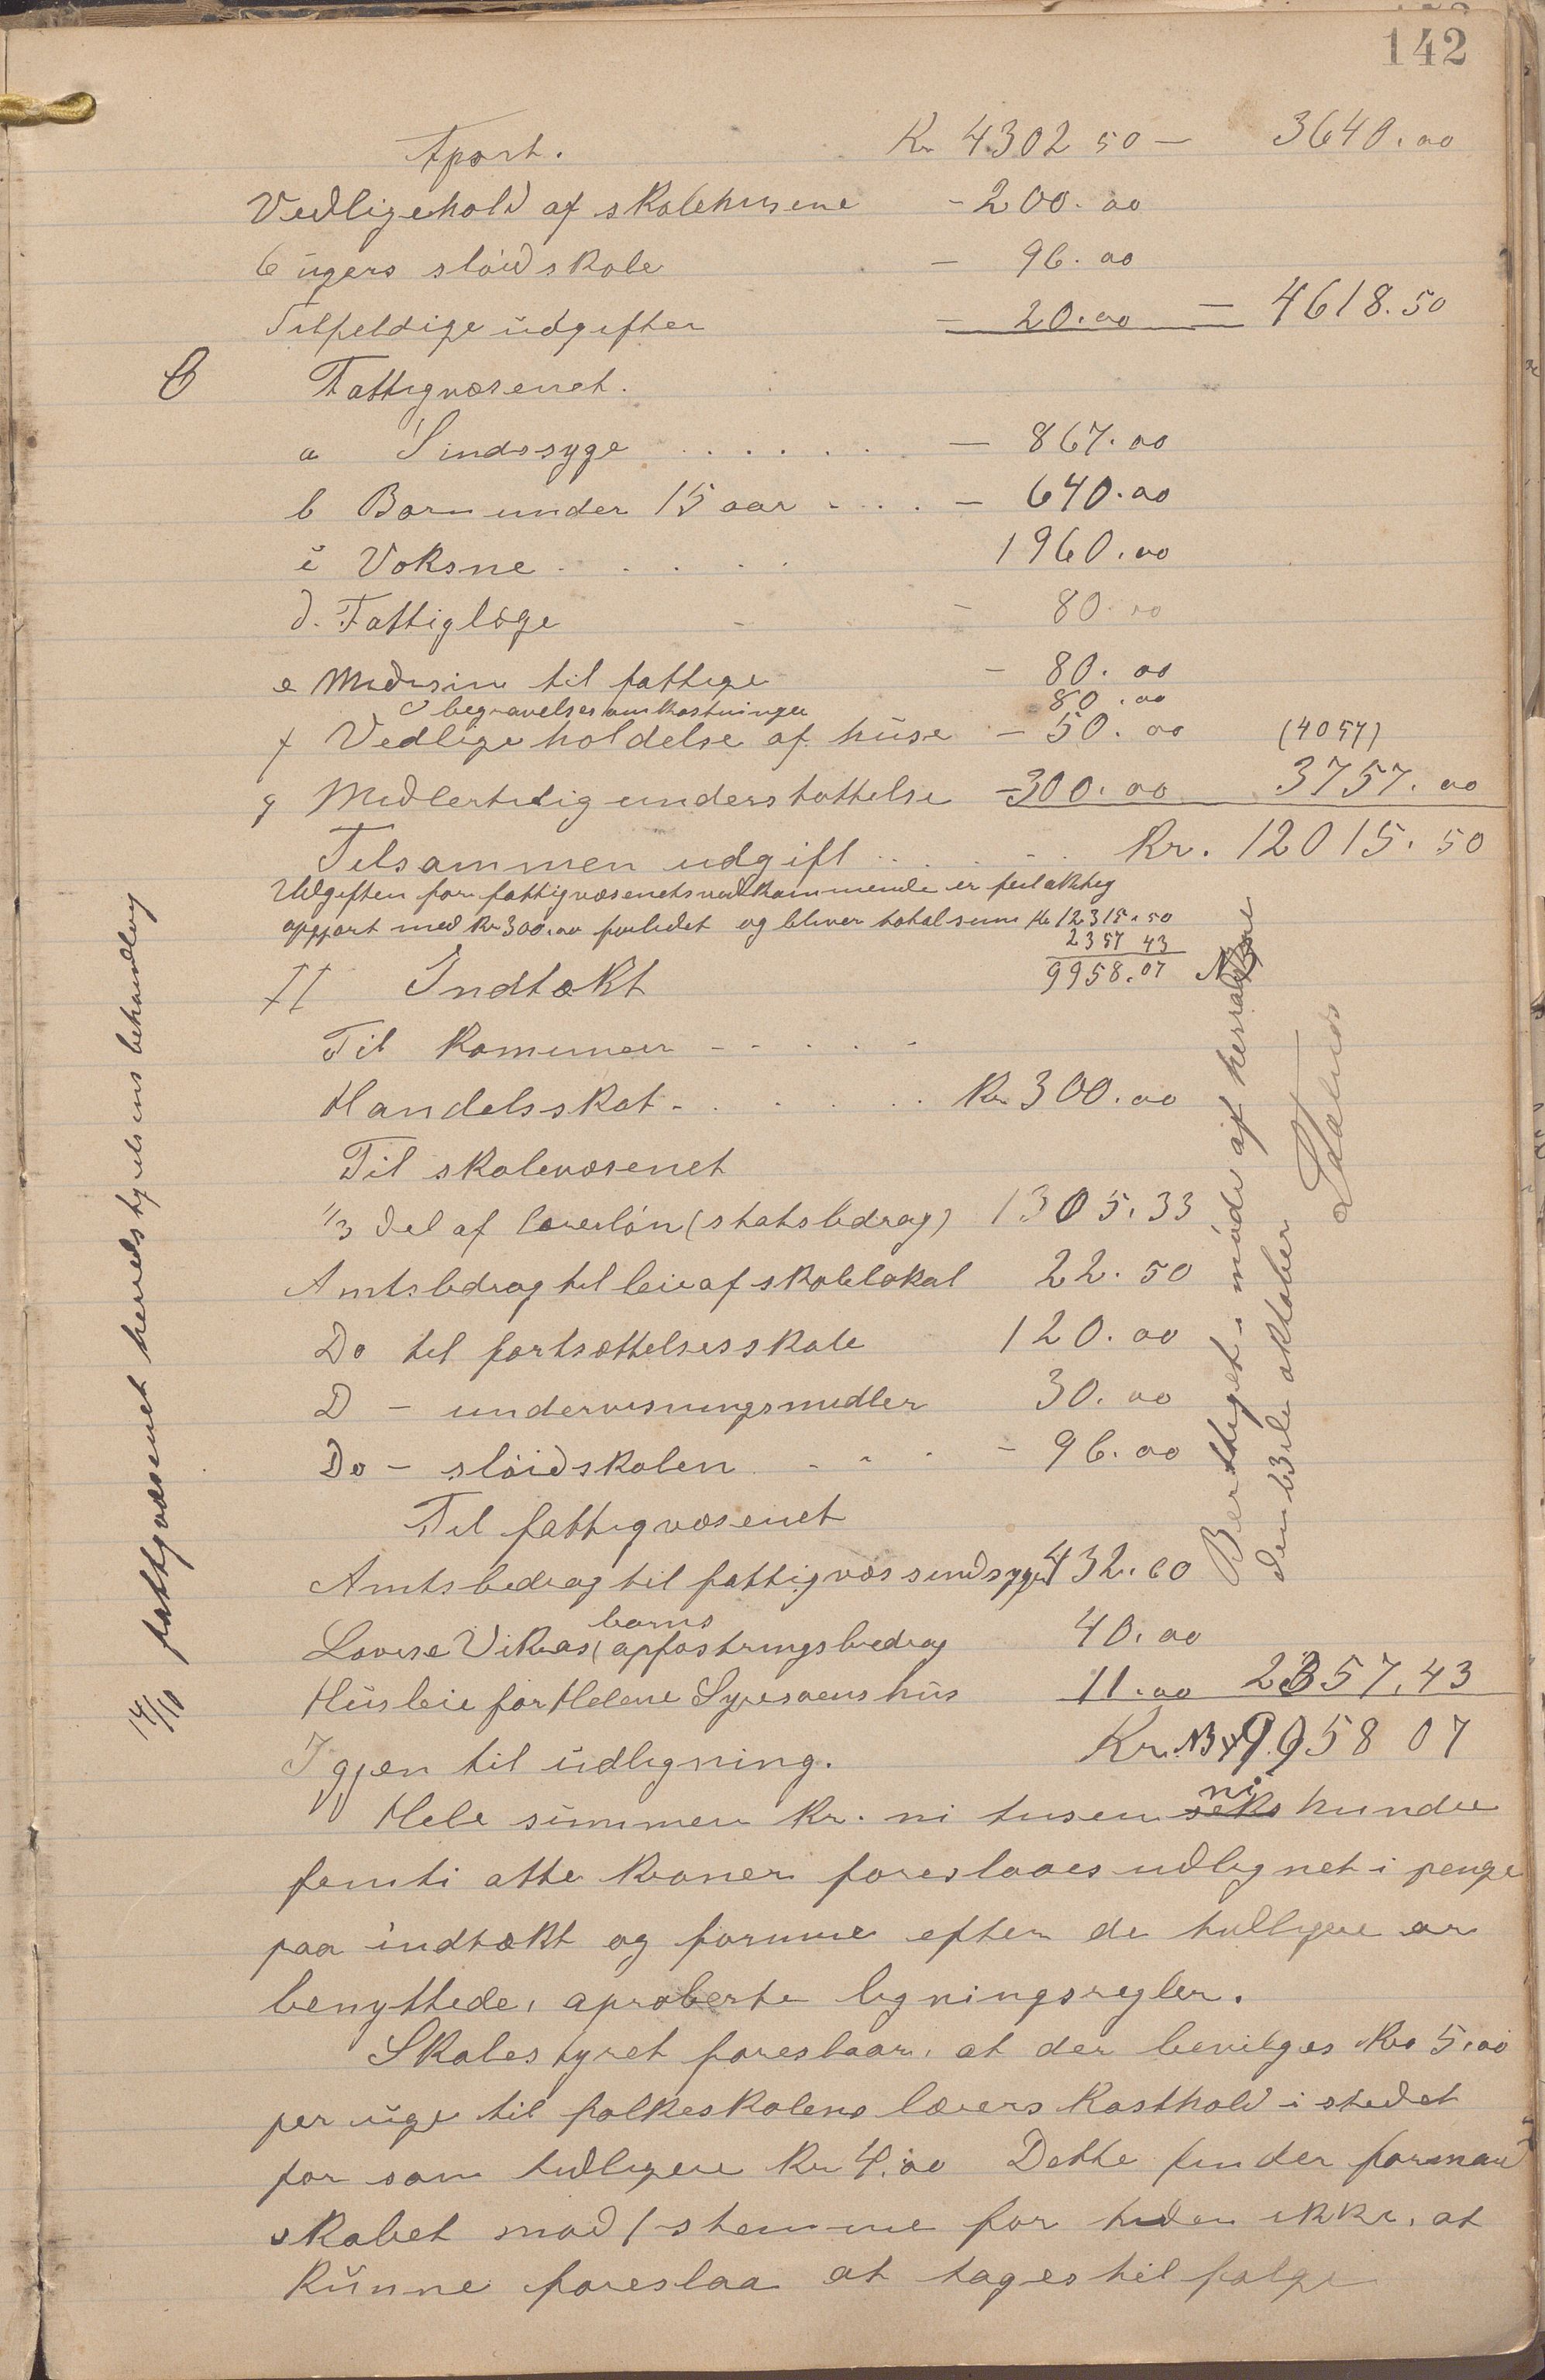 142
Tport. Kr 4302 50 — 3640.00
Vedligehold af skolehusene - 200.00
6 ugers sløidskole — 96.00
Tilfeldige udgifter — 20.00 — 4618.50
C Fattigvæsenet.
a Sindssyge . . . . . . — 867.00
b Børn under 15 aar - . . . — 640.00
c Voksne . . . . . 1960.00
d. Fattiglæge - 80.00
e Medisin til fattige - 80.00
begravelsesomkostninger 80.00
f Vedligeholdelse af huse - 50.00 (4057)
g Midlertidig understøttelse - 300.00 3757.00
Tilsammen udgift . . . . . Kr. 12015.50
Udgiften for fattigvæsenets vedkommende er feilaktig
opgjort med Kr 300.00 forlidet og bliver totalsum Kr 12315.50
2357 43
II Indtækt 9958.07
Til Komunen - - . . .
Handelsskat - . . . . . Kr 300.00
Til skolevæsenet
1/3 del af lærerløn (statsbidrag) 1305.33
Amtsbidrag til leie af skolelokal 22.50
Do til fortsættelsesskole 120.00
D - undervisningsmidler 30.00
Do - sløidskolen . - - - 96.00
Til fattigvæsenet
Amtsbidrag til fattigvæs sindsyge 432.60
barns
Lovise Vikaas opfostringsbidrag 40.00
Husleie for Helene hus 11.00 2357.43
Igjen til udligning. Kr. 9958 07
ni
Hele summen Kr. ni tusen seks hundre
femti otte kroner foreslaaes udlignet i penge
paa indtækt og formue efter de tidligere ar
benyttede, aproberte ligningsregler.
Skolestyret foreslaar, at der bevilges Kr 5.00
per uge til folkeskolens lærers kosthold i stedet
for som tidligere Kr 4.00 Dette finder formand
skabet mod 1 stemme for tiden ikke, at
kunne foreslaa at tages til følge
14/10 fattigvæsenet herredsstyrelsens behandling
Berettiget i møde af
den 13de oktober